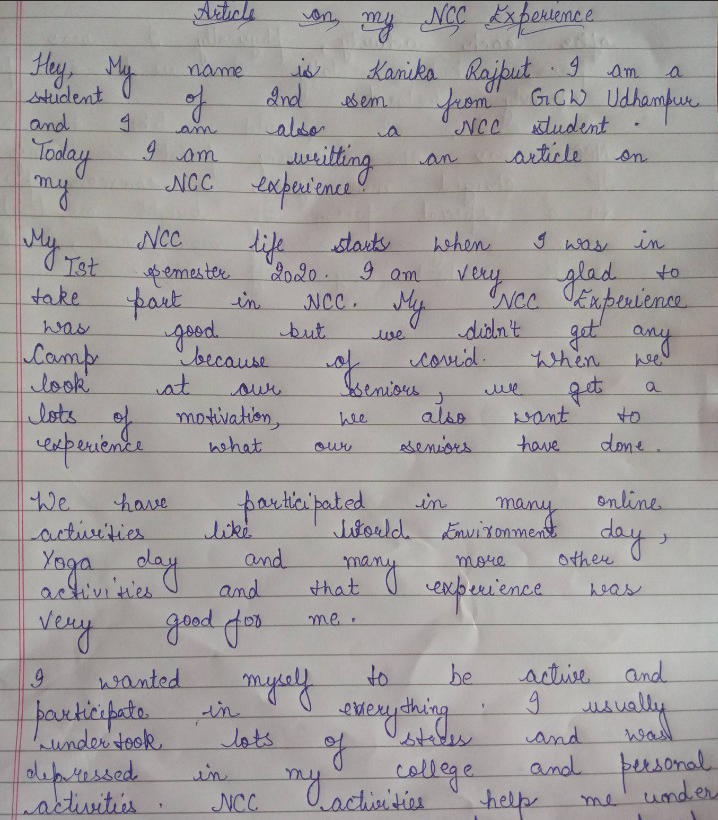 Article on my NCC Experience
Hey, My name is Kanika Rajput. I am a
student of 2nd sem from GCW Udhampur
and I am also a NCC student.
Today I am writting an article on
my NCC experience.
My NCC life starts when I was in
Ist semester 2020. I am very glad to
take part in NCC. My NCC Experience
was good but we didn't get any
Camp because of covid. When we
look at our seniors, we get a
lots of motivation, we also want to
experience what our seniors have done.
We have participated in many online
activities like World Environment day,
Yoga day and many more other
activities and that experience was
very good for me.
I wanted myself to be active and
participate in everything. I usually
undertook lots of stress and was
depressed in my college and personal
activities. NCC activities help me under